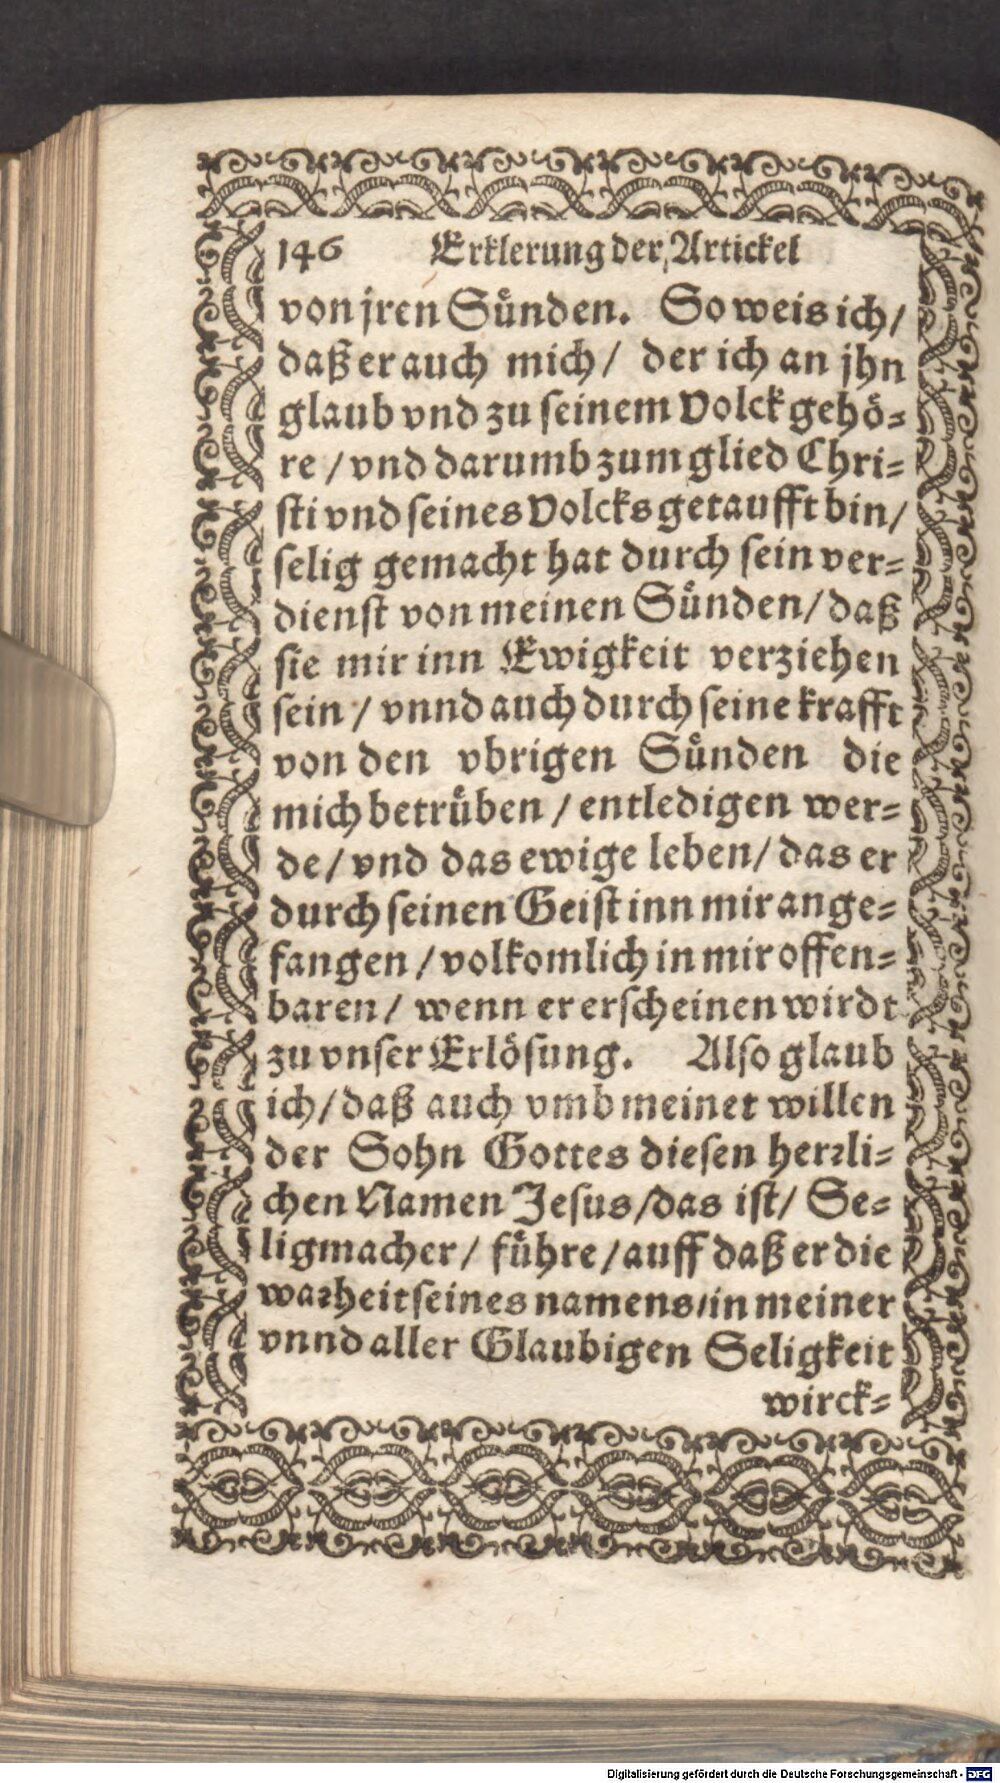 146 Erklerung der Artickel
von jren Sünden. So weis ich/
daß er auch mich/ der ich an jhn
glaub vnd zu seinem Volck gehö-
re / vnd darumb zum glied Chri-
sti vnd seines Volcks getaufft bin/
selig gemacht hat durch sein ver-
dienst von meinen Sünden/ daß
sie mir inn Ewigkeit verziehen
sein / vnnd auch durch seine krafft
von den vbrigen Sünden die
mich betrüben / entledigen wer-
de/ vnd das ewige leben/ das er
durch seinen Geist inn mir ange-
fangen / volkomlich in mir offen-
baren/ wenn er erscheinen wirdt
zu vnser Erlösung. Also glaub
ich/ daß auch vmb meinet willen
der Sohn Gottes diesen herrli-
chen Namen Jesus/das ist/ Se-
ligmacher/ führe/ auff daß er die
warheit seines namens/in meiner
vnnd aller Glaubigen Seligkeit
wirck-
Digitalisierung gefördert durch die Deutsche Forschungsgemeinschaft - DFG